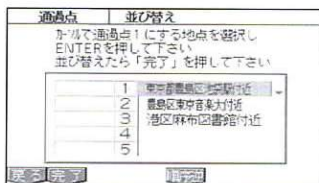 通過点 並び替え
カーソルで通過点1にする地点を選択し
ENTERを押して下さい
並び替えたら「完了」を押して下さい
1 東京都豊島区池袋駅付近
2 豊島区東京音楽大付近
3 港区麻布図書館付近
4
5
戻る 完了